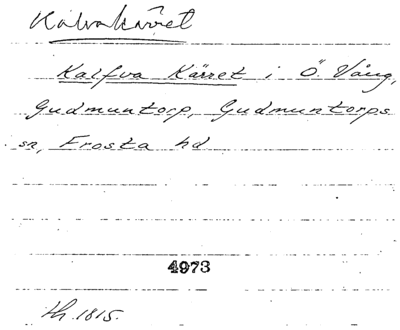 Kalvakärret
Kalfva Kärret i Ö. Vång,
Gudmuntorp, Gudmuntorps
sn, Frosta hd
4973
1815.